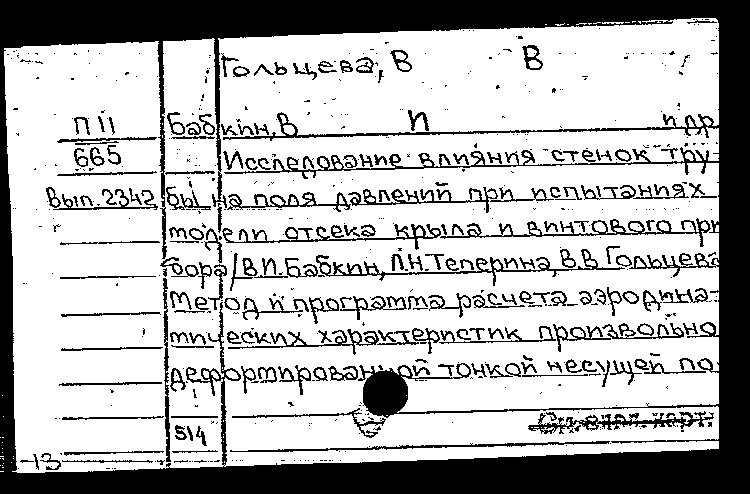 Гольцева, В В
П II Бабкин, В П и др
665 Исследование влияния стенок тру-
Вып. 2342 бы на поля давлений при испытаниях
модели отсека крыла и винтового при
бора/В.П.Бабкин, Л.Н.Теперина, В.В Гольцева
Метод и программа расчета аэродина-
мических характеристик произвольно
деформированной тонкой несущей по-
514 См. след. карт.
-13